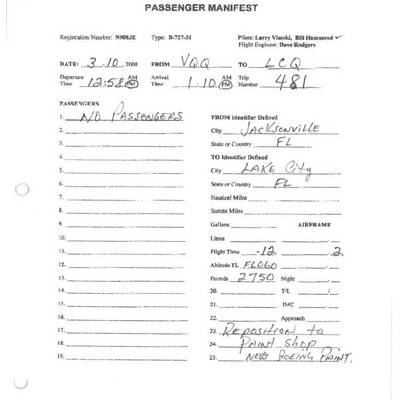 PASSENGER MANIFEST
Registration Number: N908JE Type: B-727-31 Pilots: Larry Visoski, Bill Hammond
Flight Engineer: Dave Rodgers
DATE: 3-10 2008 FROM VQQ TO LCQ
Departure Time 12:58 AM PM Arrival Time 1:10 AM PM Trip Number 481
PASSENGERS
1. NO PASSENGERS FROM Identifier Defined
2. City JACKSONVILLE
3. State or Country FL
4. TO Identifier Defined
5. City LAKE City
6. State or Country FL
7. Nautical Miles
8. Statute Miles
9. Gallons AIRFRAME
10. Litres
11. Flight Time .12 .2
12. Altitude FL FL060
13. Pounds 2750 Night
14. 20. T/L /
15. 21. IMC /
16. 22. Approach
17. 23. REPOSITION to
18. 24. PAINT SHOP
19. 25. NEW BOEING PAINT.